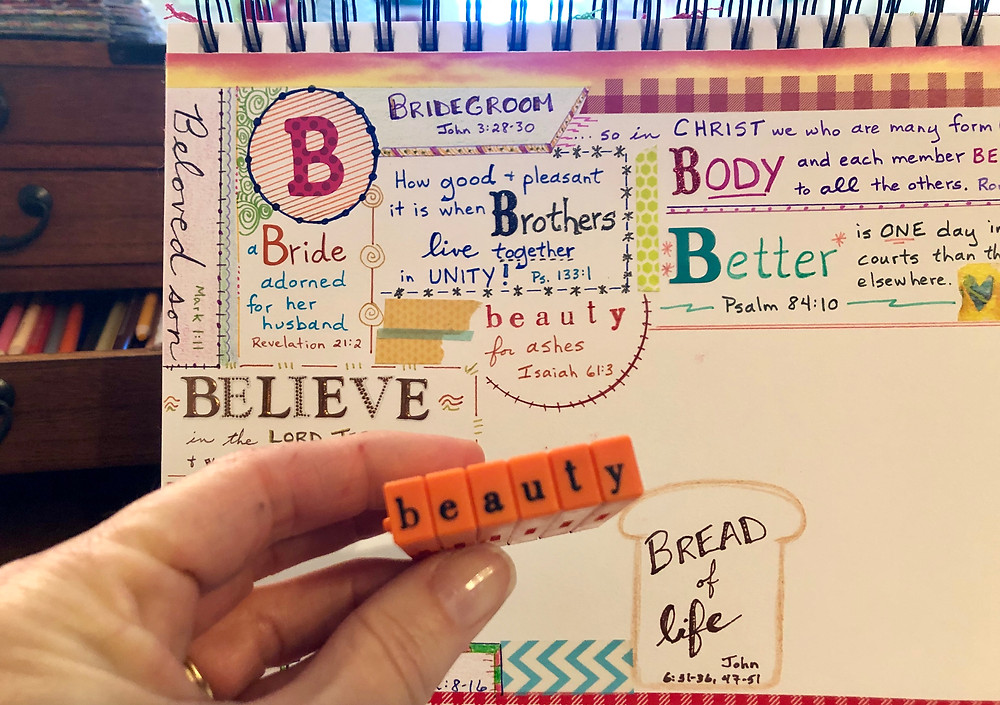 Beloved son
Mark 1:11
B
BRIDEGROOM
John 3:28-30
... so in CHRIST we who are many form
BODY and each member BE
to all the others. Ro
How good + pleasant
it is when Brothers
live together
in UNITY! Ps. 133:1
a Bride
adorned
for her
husband
Revelation 21:2
Better is ONE day in
courts than th
elsewhere.
Psalm 84:10
beauty
for ashes
Isaiah 61:3
BELIEVE
in the LORD
beauty
BREAD
of
life
John
6:31-36, 47-51
:8-16